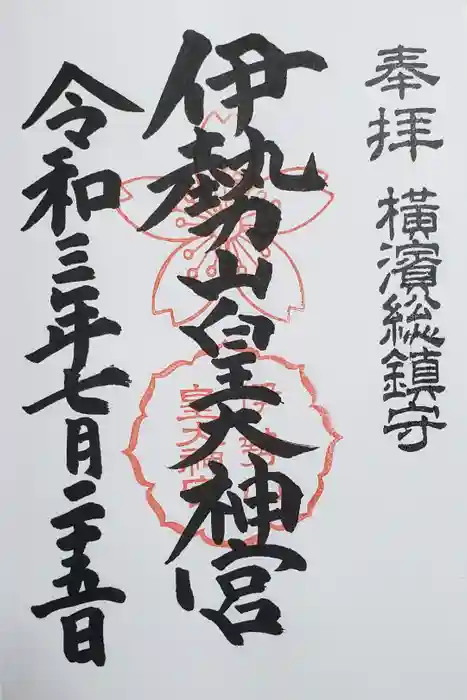 奉拝 横濱総鎮守
伊勢山皇大神宮
令和三年七月二十五日
伊勢山
皇大神宮